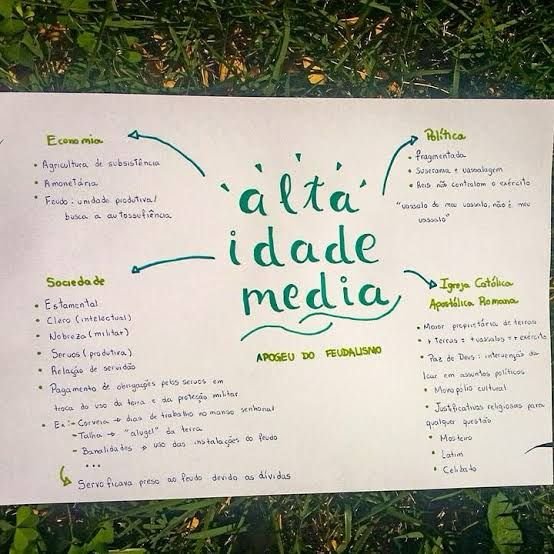 alta
idade
media
APOGEU DO FEUDALISMO
Economia
• Agricultura de subsistência
• Amonetária
• Feudo: unidade produtiva/
busca a autossuficiência
Política
• Fragmentada
• Suserania e vassalagem
• Reis não controlam o exército
"vassalo do meu vassalo, não é meu
vassalo"
Sociedade
• Estamental
• Clero (intelectual)
• Nobreza (militar)
• Servos (produtiva)
• Relação de servidão
• Pagamento de obrigações pelos servos em
troca do uso da terra e da proteção militar
• Ex: - Corveia → dias de trabalho no manso senhorial
- Talha → "aluguel" da terra
- Banalidades → uso das instalações do feudo
...
Servo ficava preso ao feudo devido as dívidas
Igreja Católica
Apostólica Romana
• Maior proprietária de terras
• + terras = + vassalos = + exército
• Paz de Deus: intervenção da
Icar em assuntos políticos
• Monopólio cultural
• Justificativas religiosas para
qualquer questão
• Mosteiro
• Latim
• Celibato